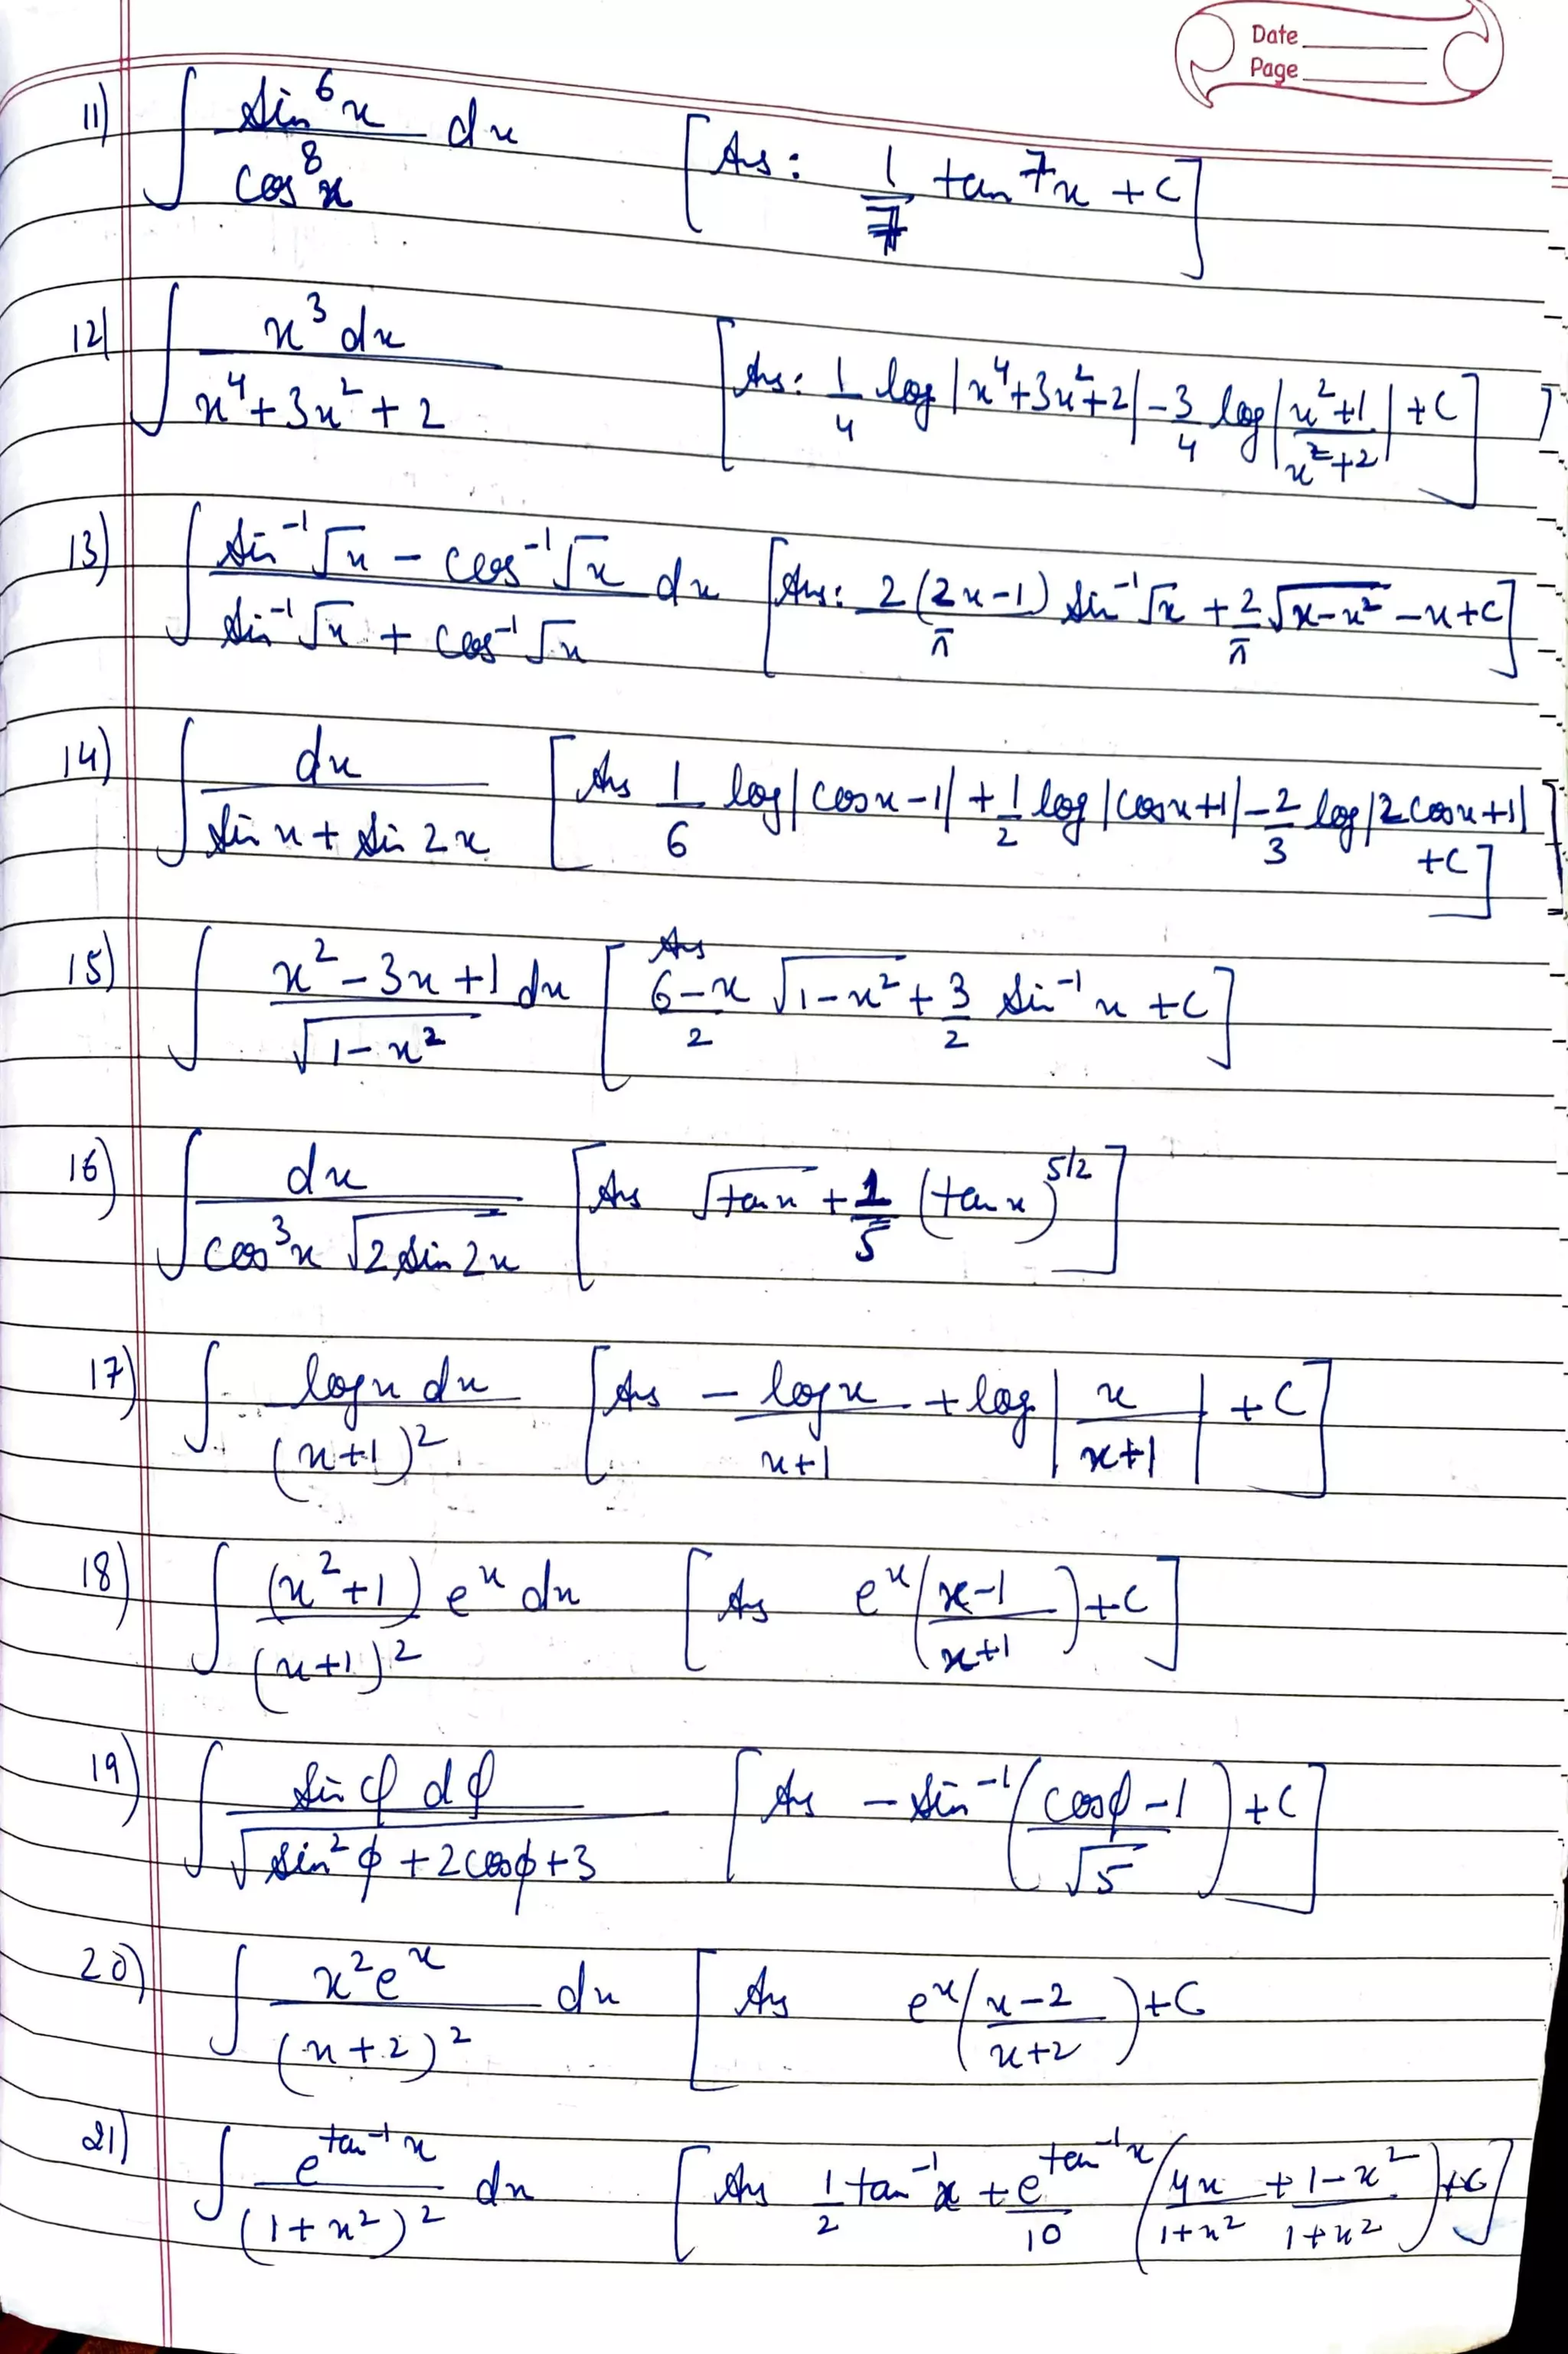 Date
Page
11) ∫ sin⁶x / cos⁸x dx [Ans: 1/7 tan⁷x + C]
12) ∫ x³ dx / x⁴+3x²+2 [Ans: 1/4 log|x⁴+3x²+2| - 3/4 log|x²+1 / x²+2| + C]
13) ∫ sin⁻¹√x - cos⁻¹√x / sin⁻¹√x + cos⁻¹√x dx [Ans: 2(2x-1)/π sin⁻¹√x + 2/π √x-x² - x + C]
14) ∫ dx / sin x + sin 2x [Ans 1/6 log|cosx-1| + 1/2 log|cosx+1| - 2/3 log|2cosx+1| + C]
15) ∫ x²-3x+1 / √1-x² dx [Ans 6-x/2 √1-x² + 3/2 sin⁻¹x + C]
16) ∫ dx / cos³x √2sin2x [Ans √tanx + 1/5 (tanx)^5/2]
17) ∫ logx dx / (x+1)² [Ans - logx / x+1 + log|x / x+1| + C]
18) ∫ (x²+1) eˣ dx / (x+1)² [Ans eˣ(x-1 / x+1) + C]
19) ∫ sinφ dφ / √sin²φ + 2cosφ + 3 [Ans - sin⁻¹(cosφ-1 / √5) + C]
20) ∫ x²eˣ / (x+2)² dx [Ans eˣ(x-2 / x+2) + C
21) ∫ e^tan⁻¹x / (1+x²)² dx [Ans 1/2 tan⁻¹x + e^tan⁻¹x / 10 (4x / 1+x² + 1-x² / 1+x²) + C]